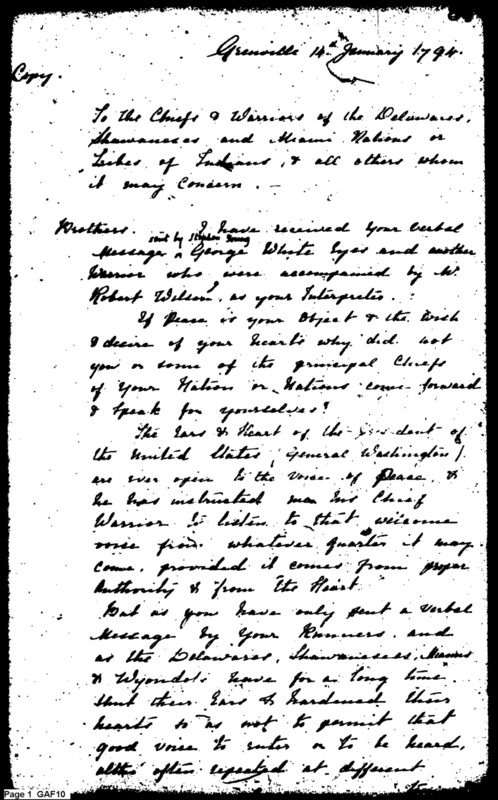 Grenville 14th January 1794.
Copy.
To the Chiefs & Warriors of the Delawares,
Shawaneses and Miami Nations or
Tribes of Indians, & all others whom
it may Concern. —
Brothers. I have received Your Verbal
sent by Stephen Young
Message, George White Eyes and another
Warrior who were accompanied by Mr
Robert Wilson, as your Interpreter.
If Peace is your Object & the Wish
& desire of your hearts why did not
you or some of the principal Chiefs
of Your Nation or Nations come forward
& Speak for yourselves?
The Ears & Heart of the President of
the United States (General Washington)
are ever open to the Voice of Peace, &
he has instructed me his Chief
Warrior to listen to that welcome
voice from whatever quarter it may
come, provided it comes from proper
Authority & from the Heart.
But as you have only sent a verbal
Message by Your Runners. and
as the Delawares, Shawaneses, Miamis
& Wyondots have for a long time
Shut their Ears & hardened their
hearts so as not to permit that
good voice to enter or to be heard,
altho often repeated at different
Page 1 GAF10